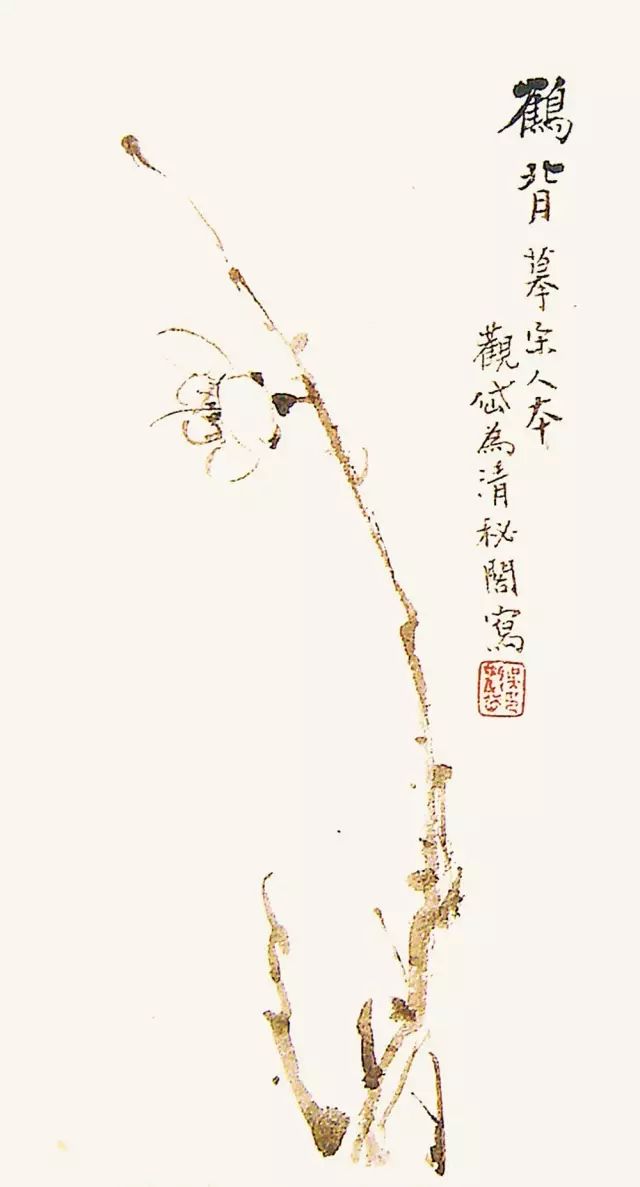 鶴背
摹宋人本
觀岱為清秘閣寫